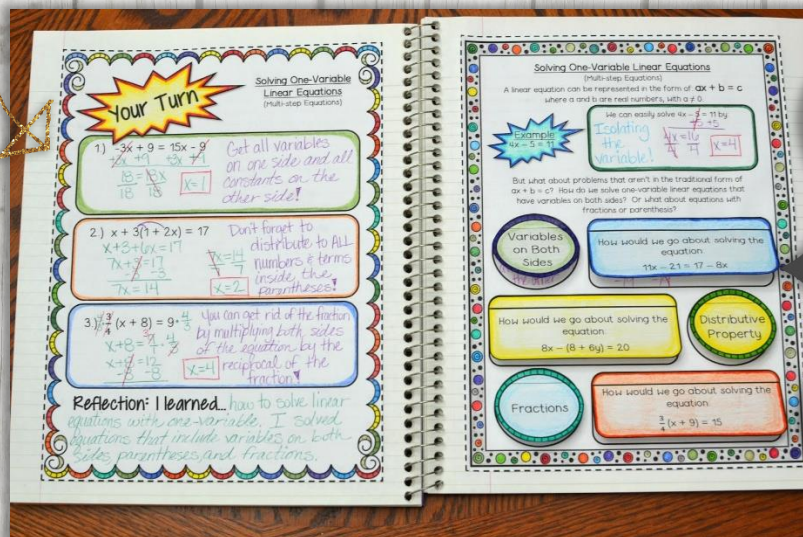 Your Turn
Solving One-Variable
Linear Equations
(Multi-step Equations)
1.) -3x + 9 = 15x - 9
+3x +9 +3x +9
18 = 18x
18 18
x=1
Get all variables
on one side and all
constants on the
other side!
2.) x + 3(1 + 2x) = 17
x+3+6x=17
7x+3=17
-3 -3
7x=14
7x=14
7 7
x=2
Don't forget to
distribute to ALL
numbers & terms
inside the
parentheses!
3.) 4/3 · 3/4 (x + 8) = 9 · 4/3
x+8=
x+8=12
-8 -8
x=4
You can get rid of the fraction
by multiplying both sides
of the equation by the
reciprocal of the
fraction!
Reflection: I learned... how to solve linear
equations with one-variable. I solved
equations that include variables on both
sides parentheses, and fractions.
Solving One-Variable Linear Equations
(Multi-step Equations)
A linear equation can be represented in the form of ax + b = c
where a and b are real numbers, with a ≠ 0.
Example:
4x - 5 = 11
We can easily solve 4x - 5 = 11 by
+5 +5
Isolating
the
variable!
4x=16
4 4
x=4
But what about problems that aren't in the traditional form of
ax + b = c? How do we solve one-variable linear equations that
have variables on both sides? Or what about equations with
fractions or parenthesis?
Variables
on Both
Sides
How would we go about solving the
equation:
11x - 21 = 17 - 8x
How would we go about solving the
equation:
8x - (8 + 6y) = 20
Distributive
Property
Fractions
How would we go about solving the
equation:
3/4 (x + 9) = 15